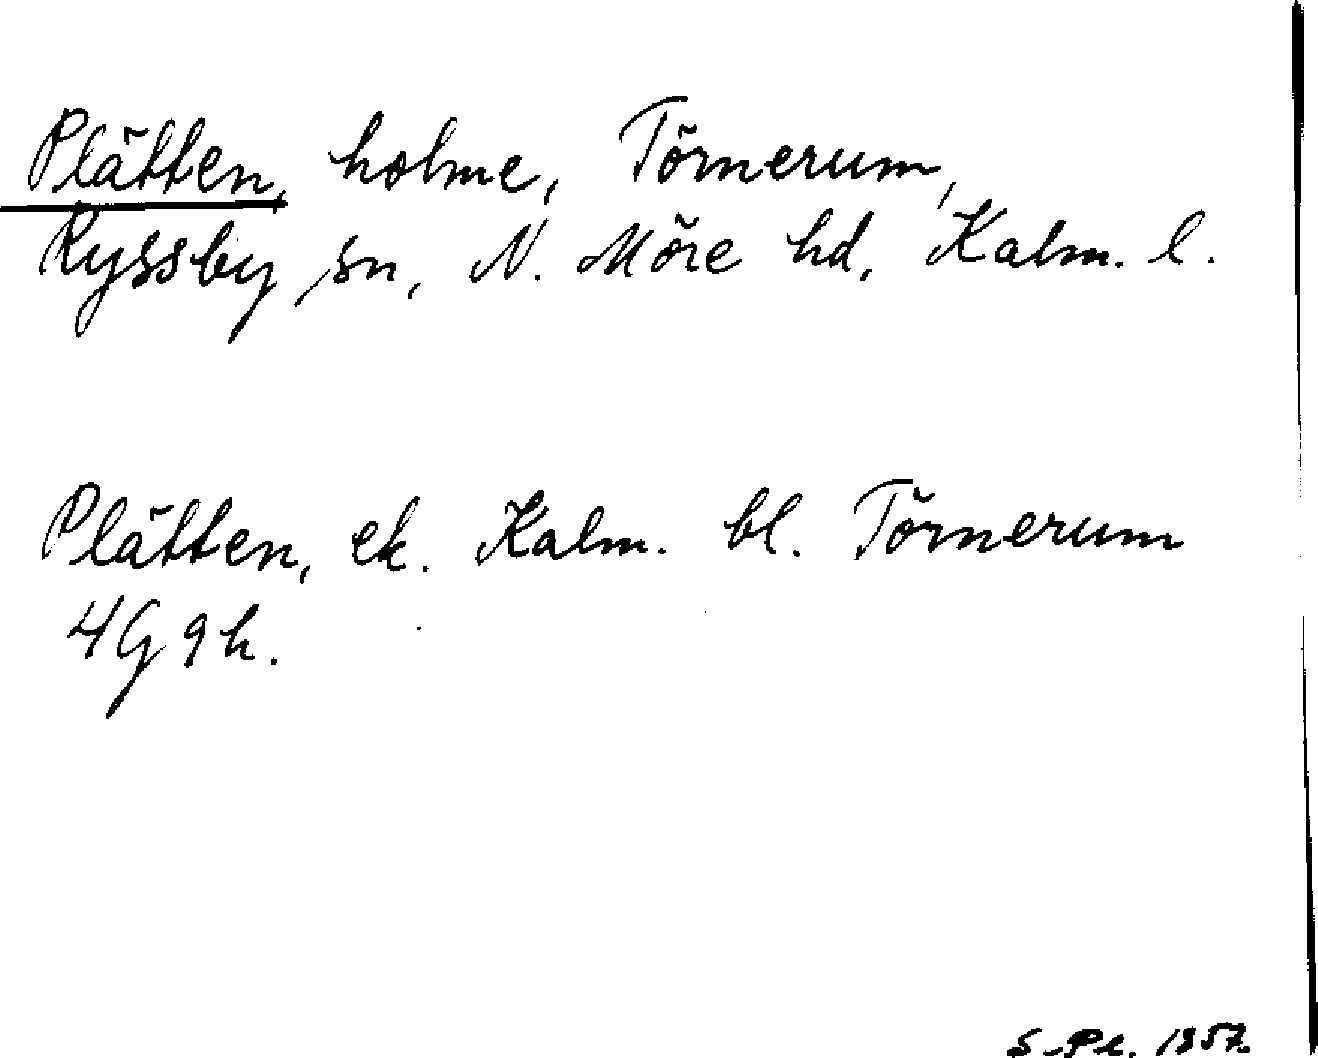 Plätten, holme, Törnerum,
Ryssby sn, N. Möre hd, Kalm. l.
Plätten, ek. Kalm. bl. Törnerum
4G 9h.
S-Pl. 1957.